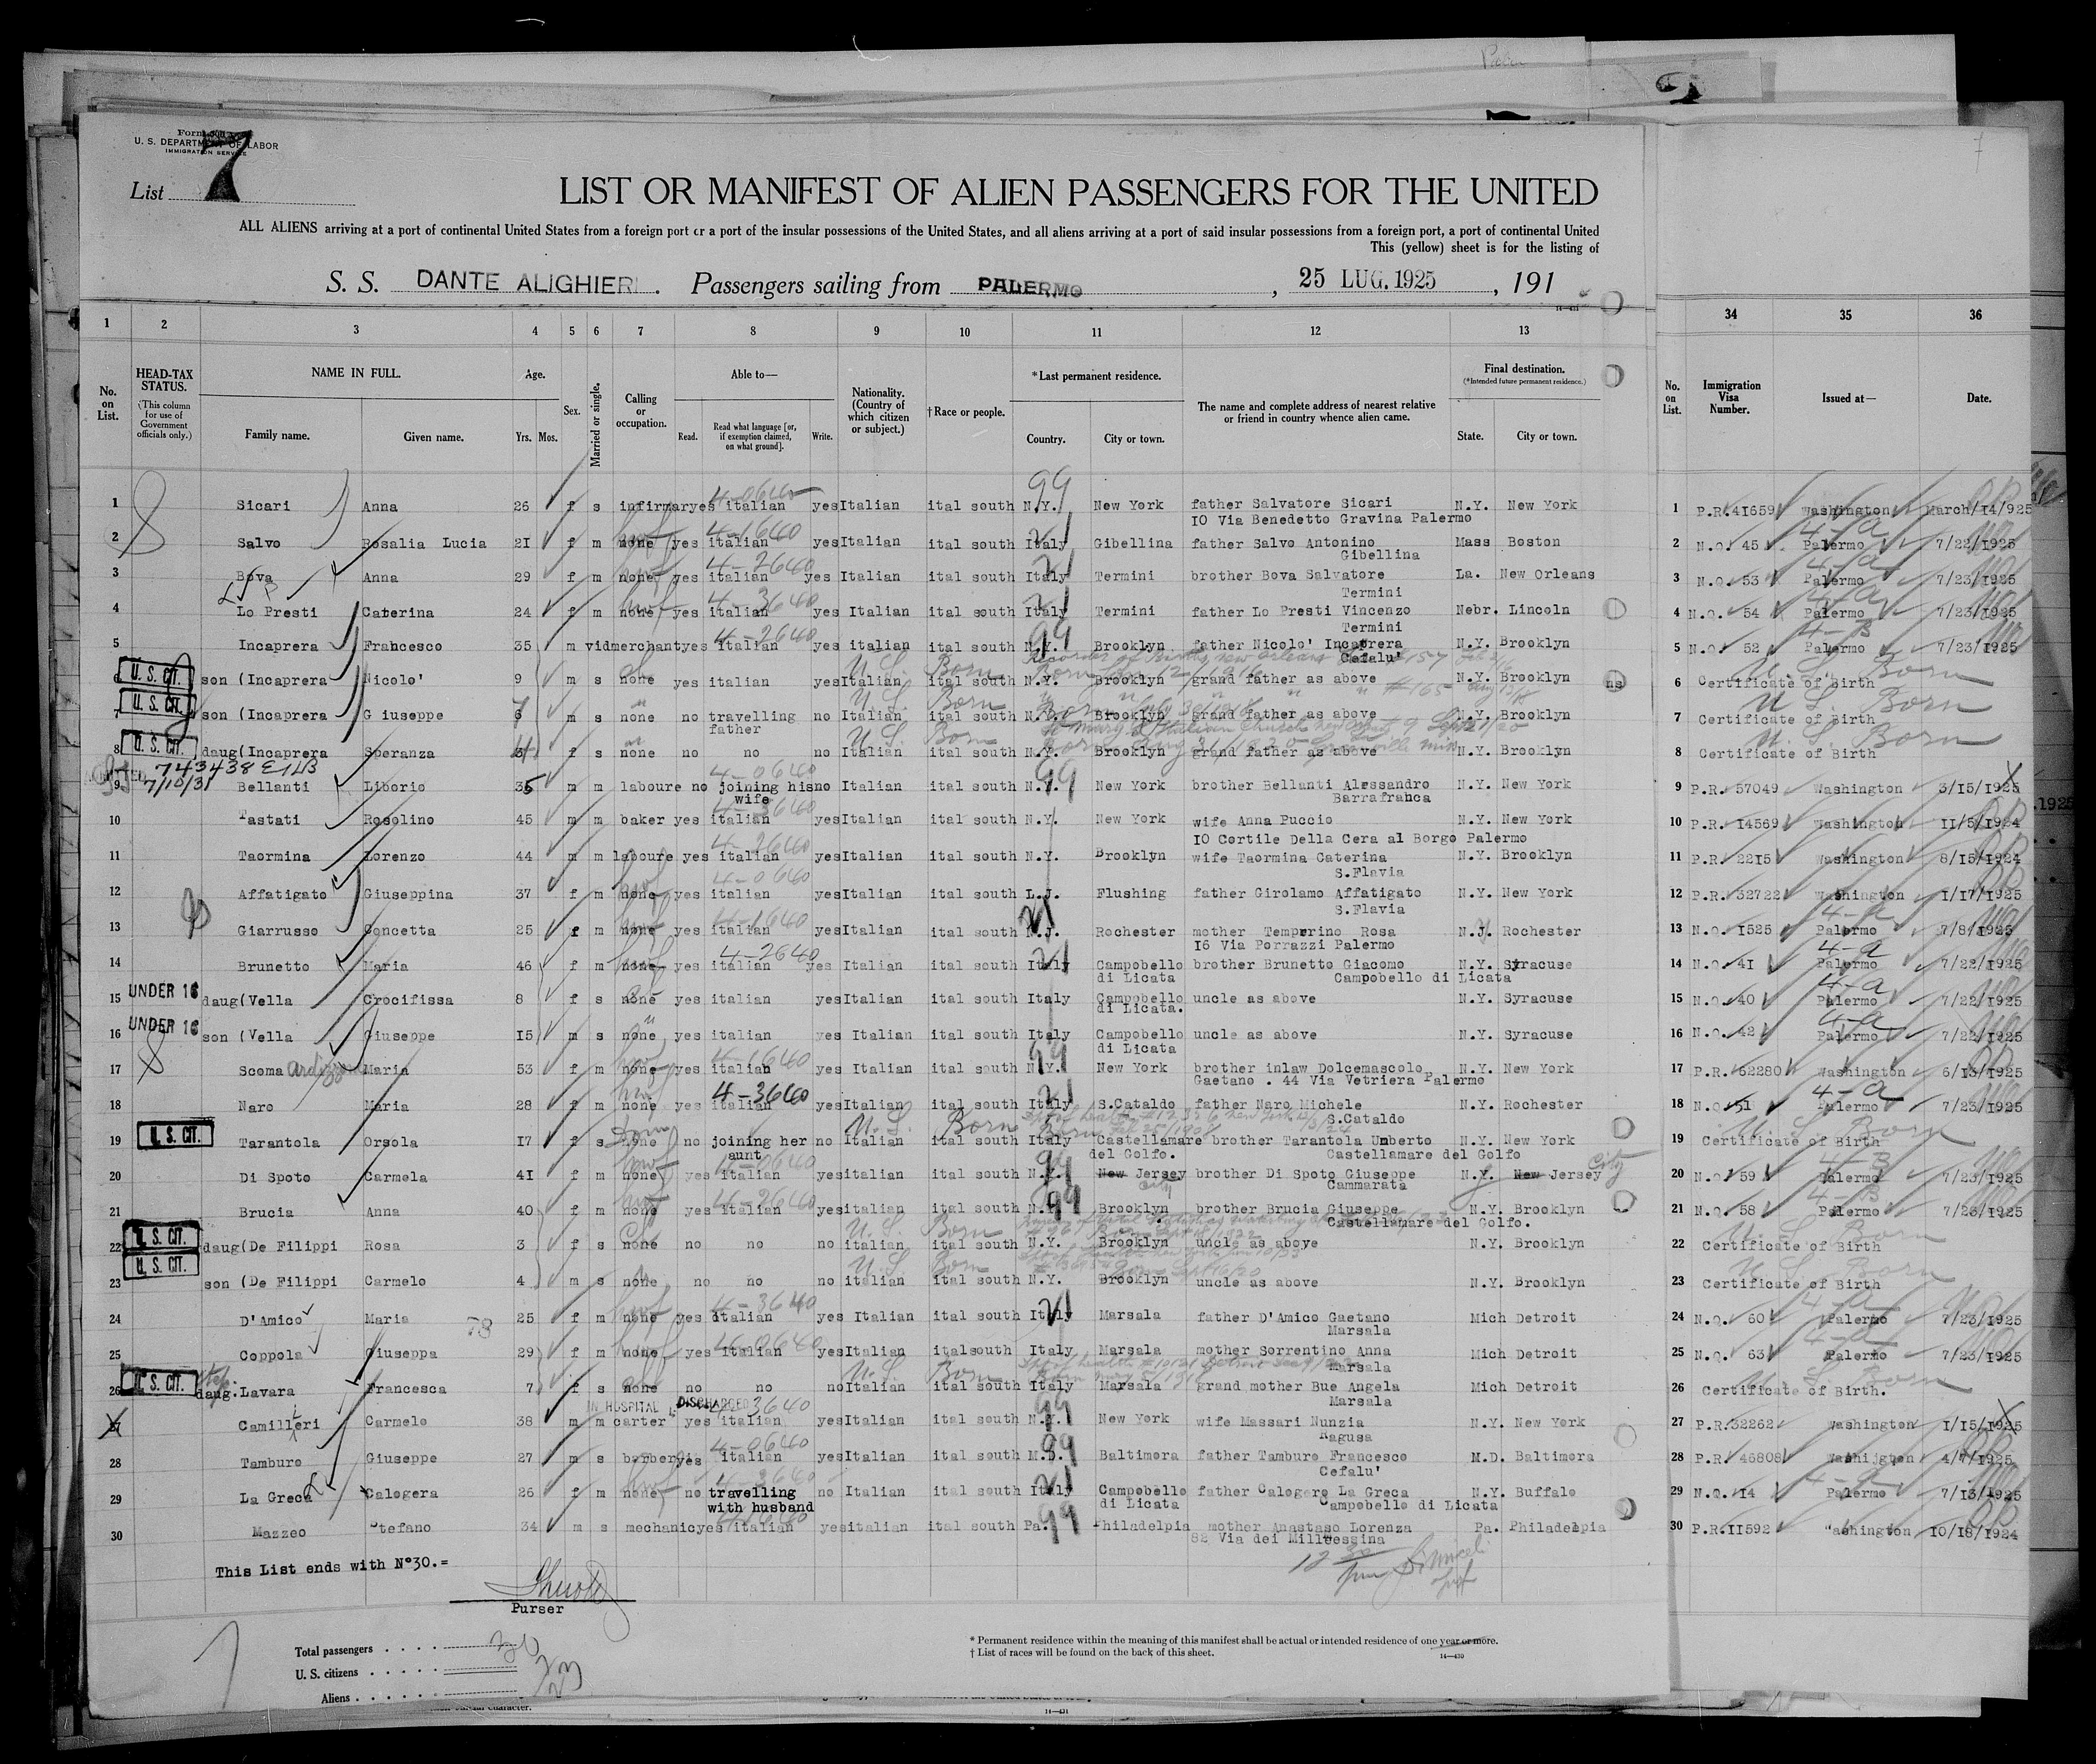 Form 500
U. S. DEPARTMENT OF LABOR
IMMIGRATION SERVICE
List 7
LIST OR MANIFEST OF ALIEN PASSENGERS FOR THE UNITED
ALL ALIENS arriving at a port of continental United States from a foreign port or a port of the insular possessions of the United States, and all aliens arriving at a port of said insular possessions from a foreign port, a port of continental United
This (yellow) sheet is for the listing of
S. S. DANTE ALIGHIERI. Passengers sailing from PALERMO, 25 LUG. 1925, 191
1 2 3 4 5 6 7 8 9 10 11 12 13 34 35 36
No. on List. HEAD-TAX STATUS. (This column for use of Government officials only.) NAME IN FULL. Family name. Given name. Age. Yrs. Mos. Sex. Married or single. Calling or occupation. Able to— Read. Read what language [or, if exemption claimed, on what ground]. Write. Nationality. (Country of which citizen or subject.) †Race or people. *Last permanent residence. Country. City or town. The name and complete address of nearest relative or friend in country whence alien came. Final destination. (*Intended future permanent residence.) State. City or town. No. on List. Immigration Visa Number. Issued at— Date.
1 Sicari Anna 26 f s infirmary yes italian yes Italian ital south N.Y. New York father Salvatore Sicari N.Y. New York 1 P.R. 41659 Washington March/14/925
10 Via Benedetto Gravina Palermo
2 Salvo Rosalia Lucia 21 f m none yes italian yes Italian ital south Italy Gibellina father Salvo Antonino Mass Boston 2 N.Q. 45 Palermo 7/22/1925
Gibellina
3 Bova Anna 29 f m none yes italian yes Italian ital south Italy Termini brother Bova Salvatore La. New Orleans 3 N.Q. 53 Palermo 7/23/1925
Termini
4 Lo Presti Caterina 24 f m none yes italian yes Italian ital south Italy Termini father Lo Presti Vincenzo Nebr. Lincoln 4 N.Q. 54 Palermo 7/23/1925
Termini
5 Incaprera Francesco 35 m vid merchant yes italian yes italian ital south N.Y. Brooklyn father Nicolo' Incaprera N.Y. Brooklyn 5 N.Q. 52 Palermo 7/23/1925
Cefalu'
U. S. Born
6 U. S. CIT. son (Incaprera Nicolo' 9 m s none yes italian yes Italian ital south N.Y. Brooklyn grand father as above N.Y. Brooklyn 6 Certificate of Birth
U. S. Born
7 U. S. CIT. son (Incaprera Giuseppe 7 m s none no travelling father no Italian ital south N.Y. Brooklyn grand father as above N.Y. Brooklyn 7 Certificate of Birth
U. S. Born
8 U. S. CIT. daug(Incaprera Speranza 4 f s none no no no Italian ital south N.Y. Brooklyn grand father as above N.Y. Brooklyn 8 Certificate of Birth
743438
7/10/31
9 Bellanti Liborio 35 m m laboure no joining his wife no Italian ital south N.Y. New York brother Bellanti Alessandro N.Y. New York 9 P.R. 57049 Washington 3/15/1925
Barrafranca
10 Tastati Rosolino 45 m m baker yes italian yes Italian ital south N.Y. New York wife Anna Puccio N.Y. New York 10 P.R. 14569 Washington 11/5/1924
10 Cortile Della Cera al Borgo Palermo
11 Taormina Lorenzo 44 m m laboure yes italian yes Italian ital south N.Y. Brooklyn wife Taormina Caterina N.Y. Brooklyn 11 P.R. 2215 Washington 8/15/1924
S.Flavia
12 Affatigato Giuseppina 37 f m none yes italian yes Italian ital south L.J. Flushing father Girolamo Affatigato N.Y. New York 12 P.R. 32722 Washington 1/17/1925
S.Flavia
13 Giarrusso Concetta 25 f m none yes italian yes Italian ital south N.J. Rochester mother Temperino Rosa N.J. Rochester 13 N.Q. 1525 Palermo 7/8/1925
16 Via Porrazzi Palermo
14 Brunetto Maria 46 f m none yes italian yes Italian ital south Italy Campobello di Licata brother Brunetto Giacomo N.Y. Syracuse 14 N.Q. 41 Palermo 7/22/1925
Campobello di Licata
15 UNDER 16 daug(Vella Crocifissa 8 f s none yes italian yes Italian ital south Italy Campobello di Licata. uncle as above N.Y. Syracuse 15 N.Q. 40 Palermo 7/22/1925
16 UNDER 16 son (Vella Giuseppe 15 m s none yes italian yes Italian ital south Italy Campobello di Licata uncle as above N.Y. Syracuse 16 N.Q. 42 Palermo 7/22/1925
17 Scoma Maria 53 f m none yes italian yes Italian ital south N.Y. New York brother inlaw Dolcemascolo N.Y. New York 17 P.R. 62280 Washington 6/13/1925
Gaetano . 44 Via Vetriera Palermo
18 Naro Maria 28 f m none yes italian yes Italian ital south Italy S.Cataldo father Naro Michele N.Y. Rochester 18 N.Q. 51 Palermo 7/23/1925
S.Cataldo
U. S. Born
19 U. S. CIT. Tarantola Orsola 17 f s none no joining her aunt no Italian ital south Italy Castellamare del Golfo. brother Tarantola Umberto N.Y. New York 19 Certificate of Birth
Castellamare del Golfo
20 Di Spoto Carmela 41 f m none yes italian yes italian ital south N.Y. New Jersey City brother Di Spoto Giuseppe N.Y. New Jersey City 20 N.Q. 59 Palermo 7/23/1925
Cammarata
21 Brucia Anna 40 f m none yes italian yes italian ital south N.Y. Brooklyn brother Brucia Giuseppe N.Y. Brooklyn 21 N.Q. 58 Palermo 7/26/1925
Castellamare del Golfo.
U. S. Born
22 U. S. CIT. daug(De Filippi Rosa 3 f s none no no no italian ital south N.Y. Brooklyn uncle as above N.Y. Brooklyn 22 Certificate of Birth
U. S. Born
23 U. S. CIT. son (De Filippi Carmelo 4 m s none no no no italian ital south N.Y. Brooklyn uncle as above N.Y. Brooklyn 23 Certificate of Birth
24 D'Amico Maria 25 f m none yes italian yes Italian ital south Italy Marsala father D'Amico Gaetano Mich Detroit 24 N.Q. 60 Palermo 7/23/1925
Marsala
25 Coppola Giuseppa 29 f m none yes italian yes Italian italsouth Italy Marsala mother Sorrentino Anna Mich Detroit 25 N.Q. 63 Palermo 7/23/1925
Marsala
U. S. Born
26 U. S. CIT. step daug. Lavara Francesca 7 f s none no no no Italian ital south Italy Marsala grand mother Bue Angela Mich Detroit 26 Certificate of Birth.
Marsala
IN HOSPITAL DISCHARGED
27 Camilleri Carmelo 38 m m carter yes italian yes Italian ital south N.Y. New York wife Massari Nunzia N.Y. New York 27 P.R. 32262 Washington 1/15/1925
Ragusa
28 Tamburo Giuseppe 27 m s barber yes italian yes Italian ital south M.D. Baltimora father Tamburo Francesco M.D. Baltimora 28 P.R. 46808 Washijgton 4/7/1925
Cefalu'
29 La Greca Calogera 26 f m none no travelling with husband no Italian ital south Italy Campobello di Licata father Calogero La Greca N.Y. Buffalo 29 N.Q. 14 Palermo 7/13/1925
Campobello di Licata
30 Mazzeo Stefano 34 m s mechanic yes italian yes italian ital south Pa. Philadelpia mother Anastaso Lorenza Pa. Philadelpia 30 P.R. 11592 Washington 10/18/1924
82 Via dei Mille Messina
This List ends with N°30.=
Purser
Total passengers . . . . 30
U. S. citizens . . . . . 7
Aliens . . . . . . 23
* Permanent residence within the meaning of this manifest shall be actual or intended residence of one year or more.
† List of races will be found on the back of this sheet.
14—430
14—431